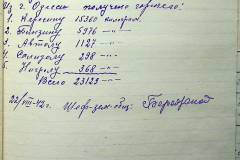 Из г. Одессы получено горючего:
1. Керосину 15360 килогром.
2. Бензину 5976 —"—
3. Автолу 1127 —"—
4. Солидолу 298 —"—
5. Нигролу 368 —"—
Всего 23129 —"—
22/VIII-42г.